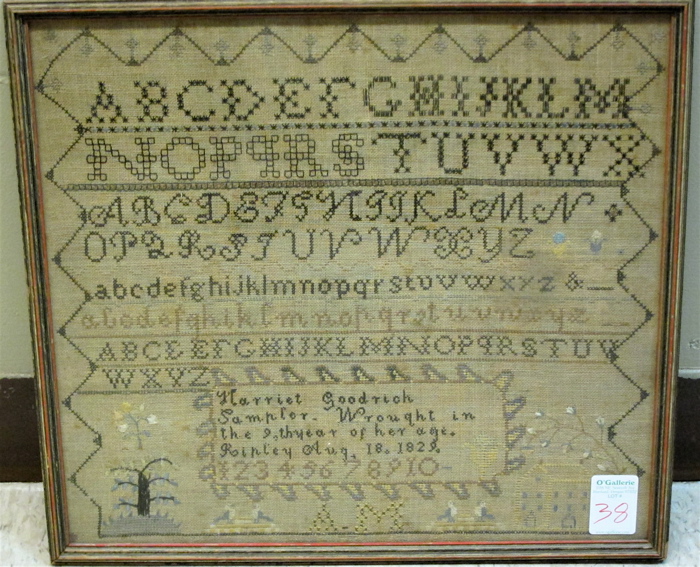 ABCDEFGHIJKLM
NOPQRSTUVWX
ABCDEFGHIJKLMN
OPQRSTUVWXYZ
abcdefghijklmnopqrstuvwxyz &
abcdefghiklmnopqrstuvwxyz
ABCDEFGHIJKLMNOPQRSTUV
WXYZ
Harriet Goodrich
Sampler. Wrought in
the 9,thyear of her age.
Ripley Aug. 18. 1829.
12345678910
A-M
O'Gallerie
38